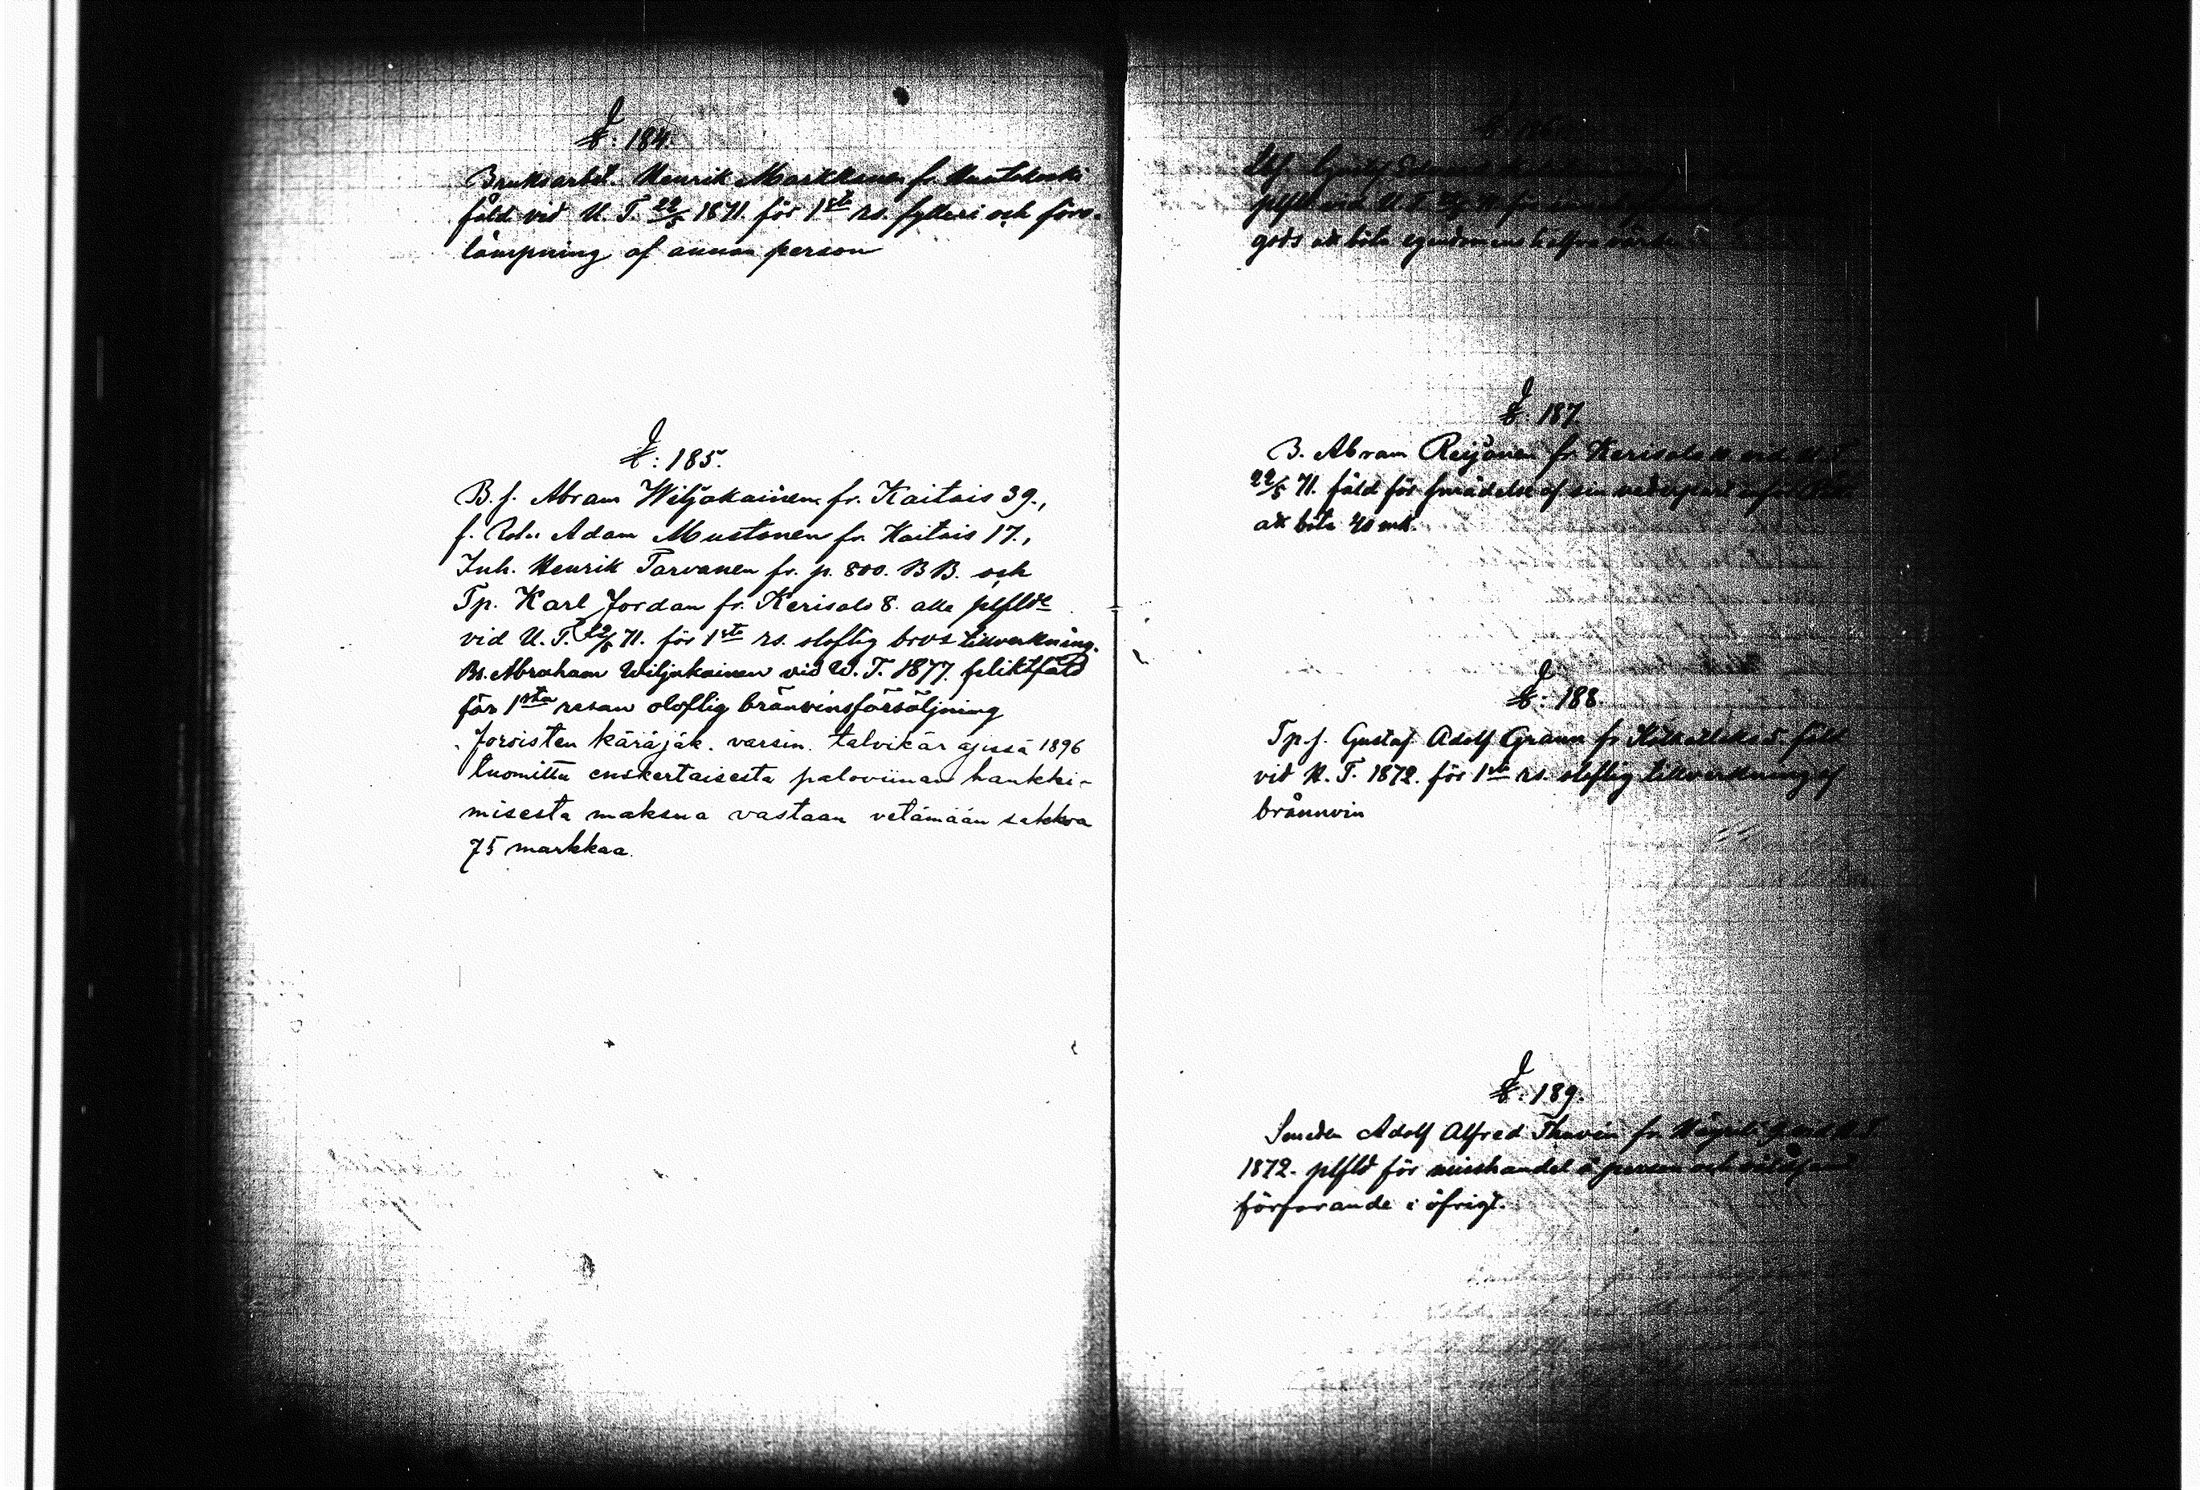 №: 184.
Bruksarbet. Henrik Markkanen fr.
fäld vid U. T. 22/5 1871. för 1sta rs. fylleri och föro-
lämpning af annan person
№: 185.
B. f. Abram Wiljakainen fr. Kaitais 39.,
f. Adam Mustonen fr. Kaitais 17.,
Inh. Henrik Tarvanen fr. p. 800. BB. och
Tp. Karl Jordan fr. Kerisalo 8. alla plflde
vid U. T. 22/5 71. för 1sta rs. oloflig brvs tillverkning.
Bs. Abraham Wiljakainen vid W. T. 1877. pliktfäld
för 1sta resan oloflig bränvinsförsäljning
Joroisten käräjäk. varsin. talvikär ajissä 1896
tuomittu enskertaisesta paloviinan hankki-
misesta maksua vastaan vetämään sakkoa
75 markkaa.
gods att böta egendomens halfva värde
№: 187.
B. Abram Reijonen fr. Kerisalo 11 vid U. T.
22/5 71. fäld för smädelse af sin vederpart inför
att böta 40 mk.
№: 188.
Tp. f. Gustaf Adolf Grann fr. 5. fäld
vid H. T. 1872. för 1sta rs. oloflig tillverkning af
brännvin
№: 189.
Smeden Adolf Alfred Thuvin fr.
1872. plfld för misshandel å person och
förfarande i öfrigt.